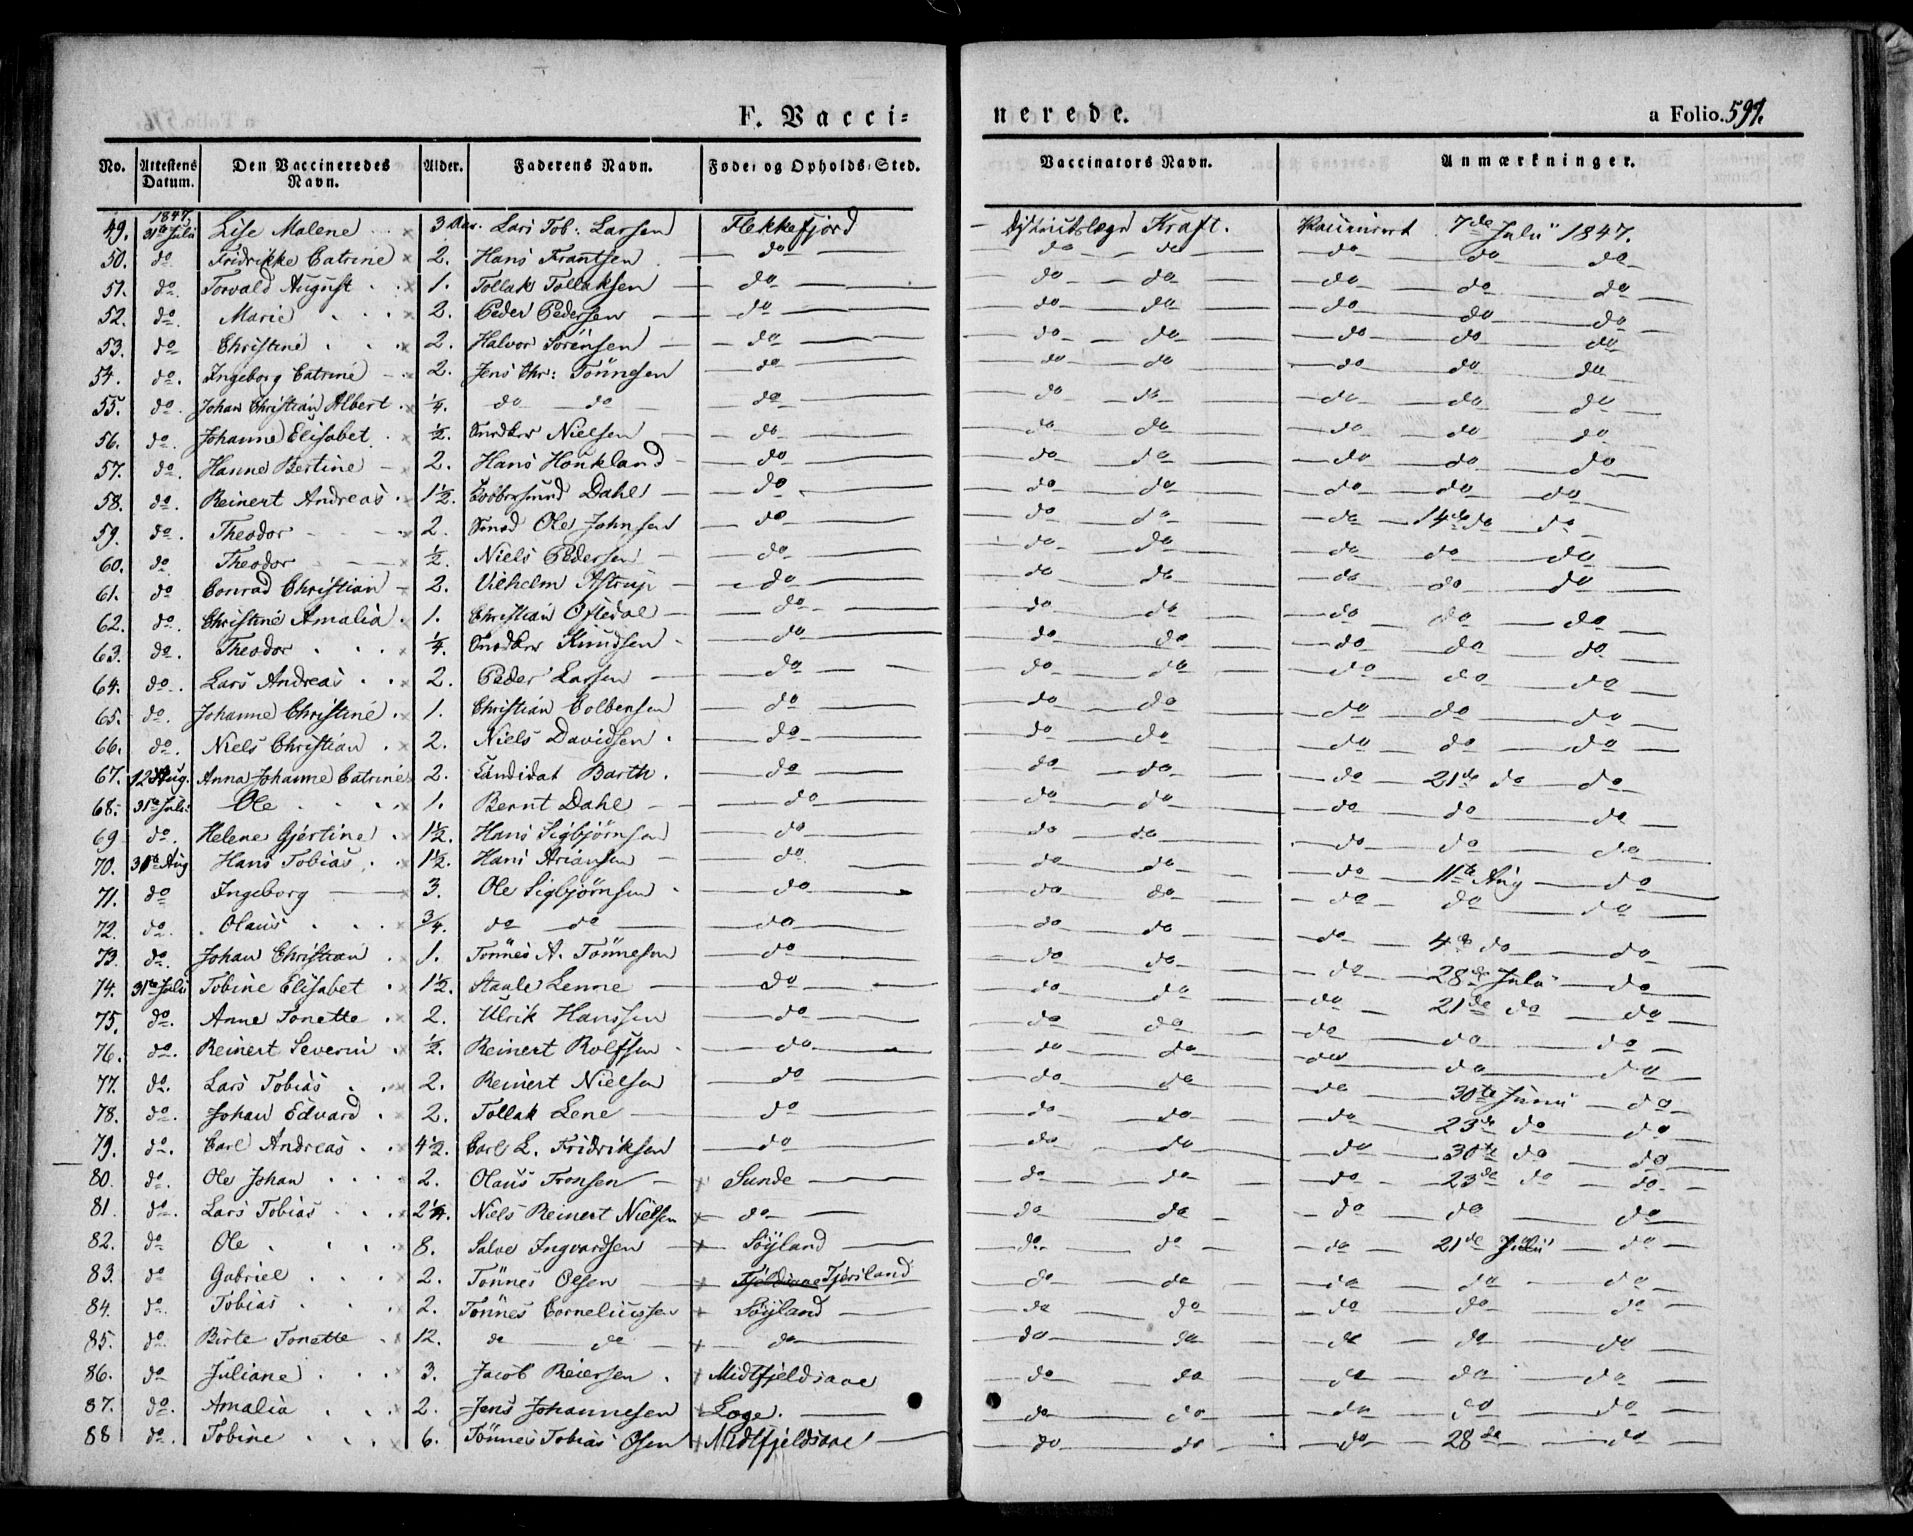 F. Vacci= nerede. a Folio. 597.
No. Attestens Datum. Den Vaccineredes Navn. Alder. Faderens Navn. Føde- og Opholds-Sted. Vaccinators Navn. Anmærkninger.
49. 1847, 31te Juli Lise Malene 3 Lars Tob: Larsen Flekkefjord Districtslæge Kraft. Vaccineret 7de Juli 1847.
50. do Fridrikke Catrine 2. Hans Frantsen do do do do do do
51. do. Torvald August 1. Tollak Tollaksen do do do do do do
52. do. Marie 2. Peder Pedersen do do do do do do
53. do Christine 2. Halvor Sörensen do do do do do do
54. do. Ingeborg Catrine 2. Jens Chr: Tönnesen do do do do do do
55. do. Johan Christian Albert 1/4. do do do do do do do do
56. do. Johanne Elisabet 1/2. Nielsen do do do do do do
57. do. Hanne Bertine 2. Hans Honkland do do do do do do
58. do. Reinert Andreas 1 1/2. Dahl do do do do do do
59. do. Theodor 2. Ole Johnsen do do do do 14de do do
60. do Theodor 1/2. Niels Pedersen do do do do do do
61. do Conrad Christian 2. Vilhelm Astrup do do do do do do
62. do. Christine Amalia 1. Christian Oftedal do do do do do do
63. do. Theodor 1/4. Knudsen do do do do do do
64. do. Lars Andreas 2. Peder Larsen do do do do do do
65. do. Johanne Christine 1. Christian Colbensen do do do do do do
66. do. Niels Christian 2. Niels Davidsen do do do do do do
67. 12 Aug. Anna Johanne Catrine 2. Candidat Barth. do do do do 21de do do
68. 31te Juli Ole 1. Bernt Dahl do do do do do do
69 do. Helene Gjertine 1 1/2. Hans Sigbjörnsen do do do do do do
70. 31te Aug Hans Tobias 1 1/2. Hans Ariansen do do do do 11te Aug do
71. do Ingeborg 3. Ole Sigbjörnsen do do do do do do
72. do. Olaus 3/4. do do do do do do 4de do do
73. do. Johan Christian 1. Tönnes A. Tönnesen do do do do 28de Juli do
74. 31te Juli Tobine Elisabet 1 1/2. Staale Lenne do do do do 21de do do
75. do. Anne Tonette 2. Ulrik Hanssen do do do do do do
76. do. Reinert Severin 1/2. Reinert Rolfsen do do do do do do
77. do. Lars Tobias 2. Reinert Nielsen do do do do 30te Juni do
78. do. Johan Edvard 2. Tollak Lene do do do do 23de do do
79. do. Carl Andreas 4 1/2. Carl L. Fridriksen do do do do 30te do do
80. do. Ole Johan 2. Olaus Tronsen Sunde do do do 23de do do
81. do. Lars Tobias 2 1/4. Niels Reinert Nielsen do do do do do do
82. do Ole 8. Salve Ingvardsen Söyland do. do do 21de Juli do
83. do Gabriel 2. Tönnes Olsen Tjörsland do do do do do
84. do. Tobias 2. Tönnes Corneliussen Söyland do do do do do
85. do Birte Tonette 12. do do do do do do do do
86. do Juliane 3. Jacob Reiersen Midtfjeldsaae do do do do do
87. do. Amalia 2. Jens Johannesen Loge. do do do do do
88 do. Tobine 6. Tönnes Tobias Olsen Midtfjeldsaae do do do 28de do